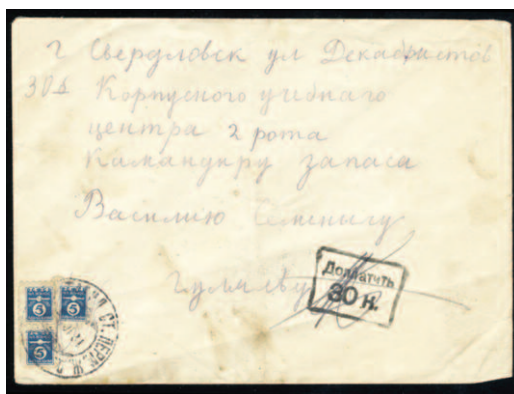 г Свердловск ул Декабристов
30А Корпусного учебнаго
центра 2 рота
Камандиру запаса
Василию
Доплатить
30 к.
5 5
5